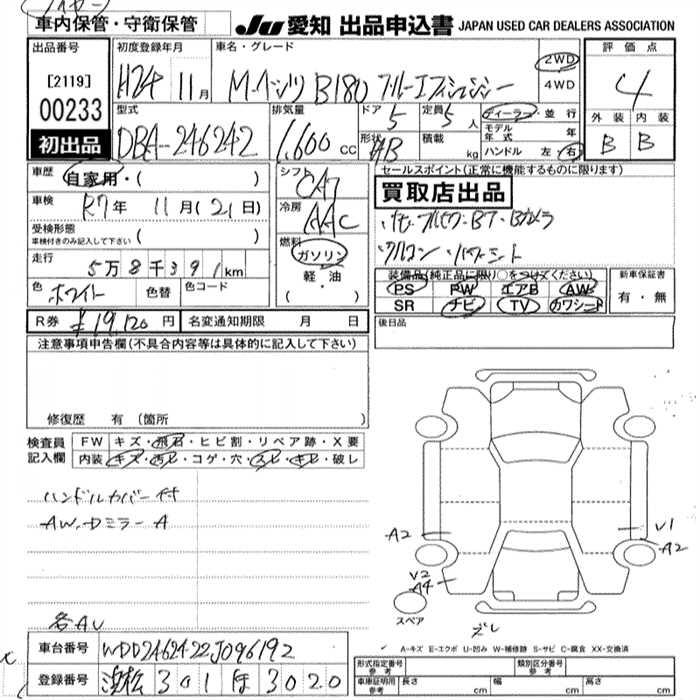 車内保管・守衛保管
JU 愛知 出品申込書 JAPAN USED CAR DEALERS ASSOCIATION
出品番号
[2119]
00233
初出品
初度登録年月
H24 11月
車名・グレード
M・ベンツ B180 ブルーエフィシェンシー
2WD
4WD
評価点
4
外装 内装
B B
型式
DBA-246242
排気量
1,600 cc
ドア 5
形状 HB
定員 5 人
積載 kg
ディーラー・並行
モデル年式 年
ハンドル 左・右
車歴 自家用・( )
車検 R7年 11月(21日)
受検形態
車検付きのみ記入して下さい ( )
走行 5万8千391km
色 ホワイト 色替 色コード
シフト CA7
冷房 AAC
燃料
ガソリン
軽・油
( )
セールスポイント(正常に機能するものに限ります)
買取店出品
ワルコン・パワーシート
装備品(純正品に限り○をつけてください)
PS PW エアB AW
SR ナビ TV カワシート
新車保証書
有・無
後日品
R券 ¥19,120円 名変通知期限 月 日
注意事項申告欄(不具合内容等は具体的に記入して下さい)
修復歴 有(箇所 )
検査員記入欄
FW キズ・飛石・ヒビ割・リペア跡・X要
内装 キズ・汚レ・コゲ・穴・スレ・キレ・破レ
ハンドルカバー付
AW、Dミラー A
各AU
A2
V1
A2
V2
A4
スペア
ズレ
A-キズ E-エクボ U-凹み W-補修跡 S-サビ C-腐食 XX-交換済
車台番号 WDD2462422J096192
登録番号 浜松 301 ほ 3020
型式指定番号 参考 類別区分番号 参考
車庫証明用 参考 長さ cm 幅 cm 高さ cm